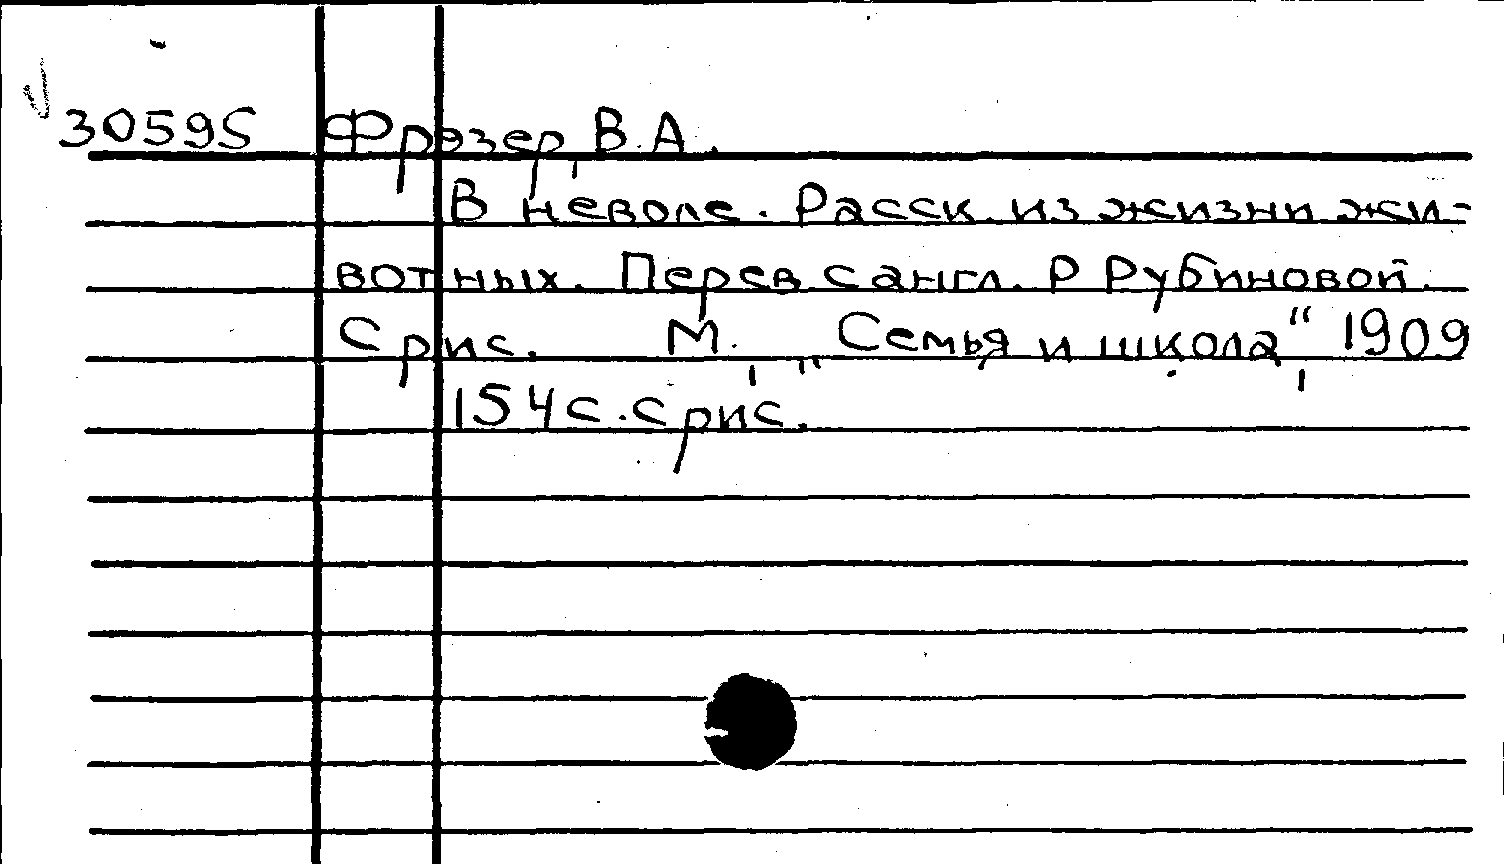 30595 Фрэзер, В.А.
В неволе. Расск. из жизни жи-
вотных. Перев с англ. Р Рубиновой.
С рис. М., „Семья и школа“, 1909
154 с. с рис.